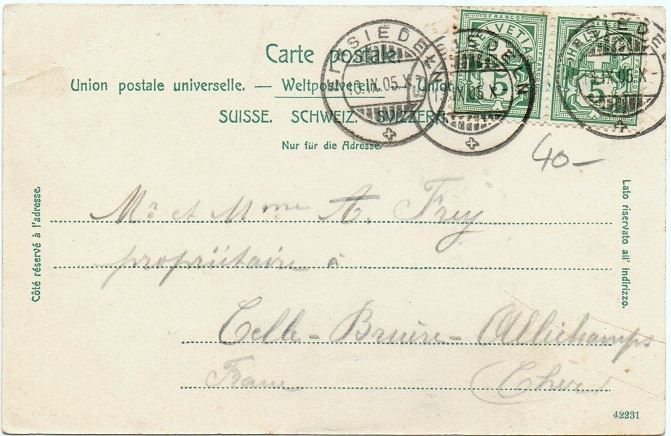 Carte postale.
Union postale universelle. — Weltpostverein. — Unione
SUISSE. SCHWEIZ. SVIZZERA.
Nur für die Adresse.
EINSIEDELN
13.IX.05.X
FRANCO
HELVETIA
5
40-
Côté réservé à l'adresse.
Lato riservato all' indirizzo.
Mr et Mme A. Frey
propriétaire à
Celle-Bruère-Allichamps
Cher
42231